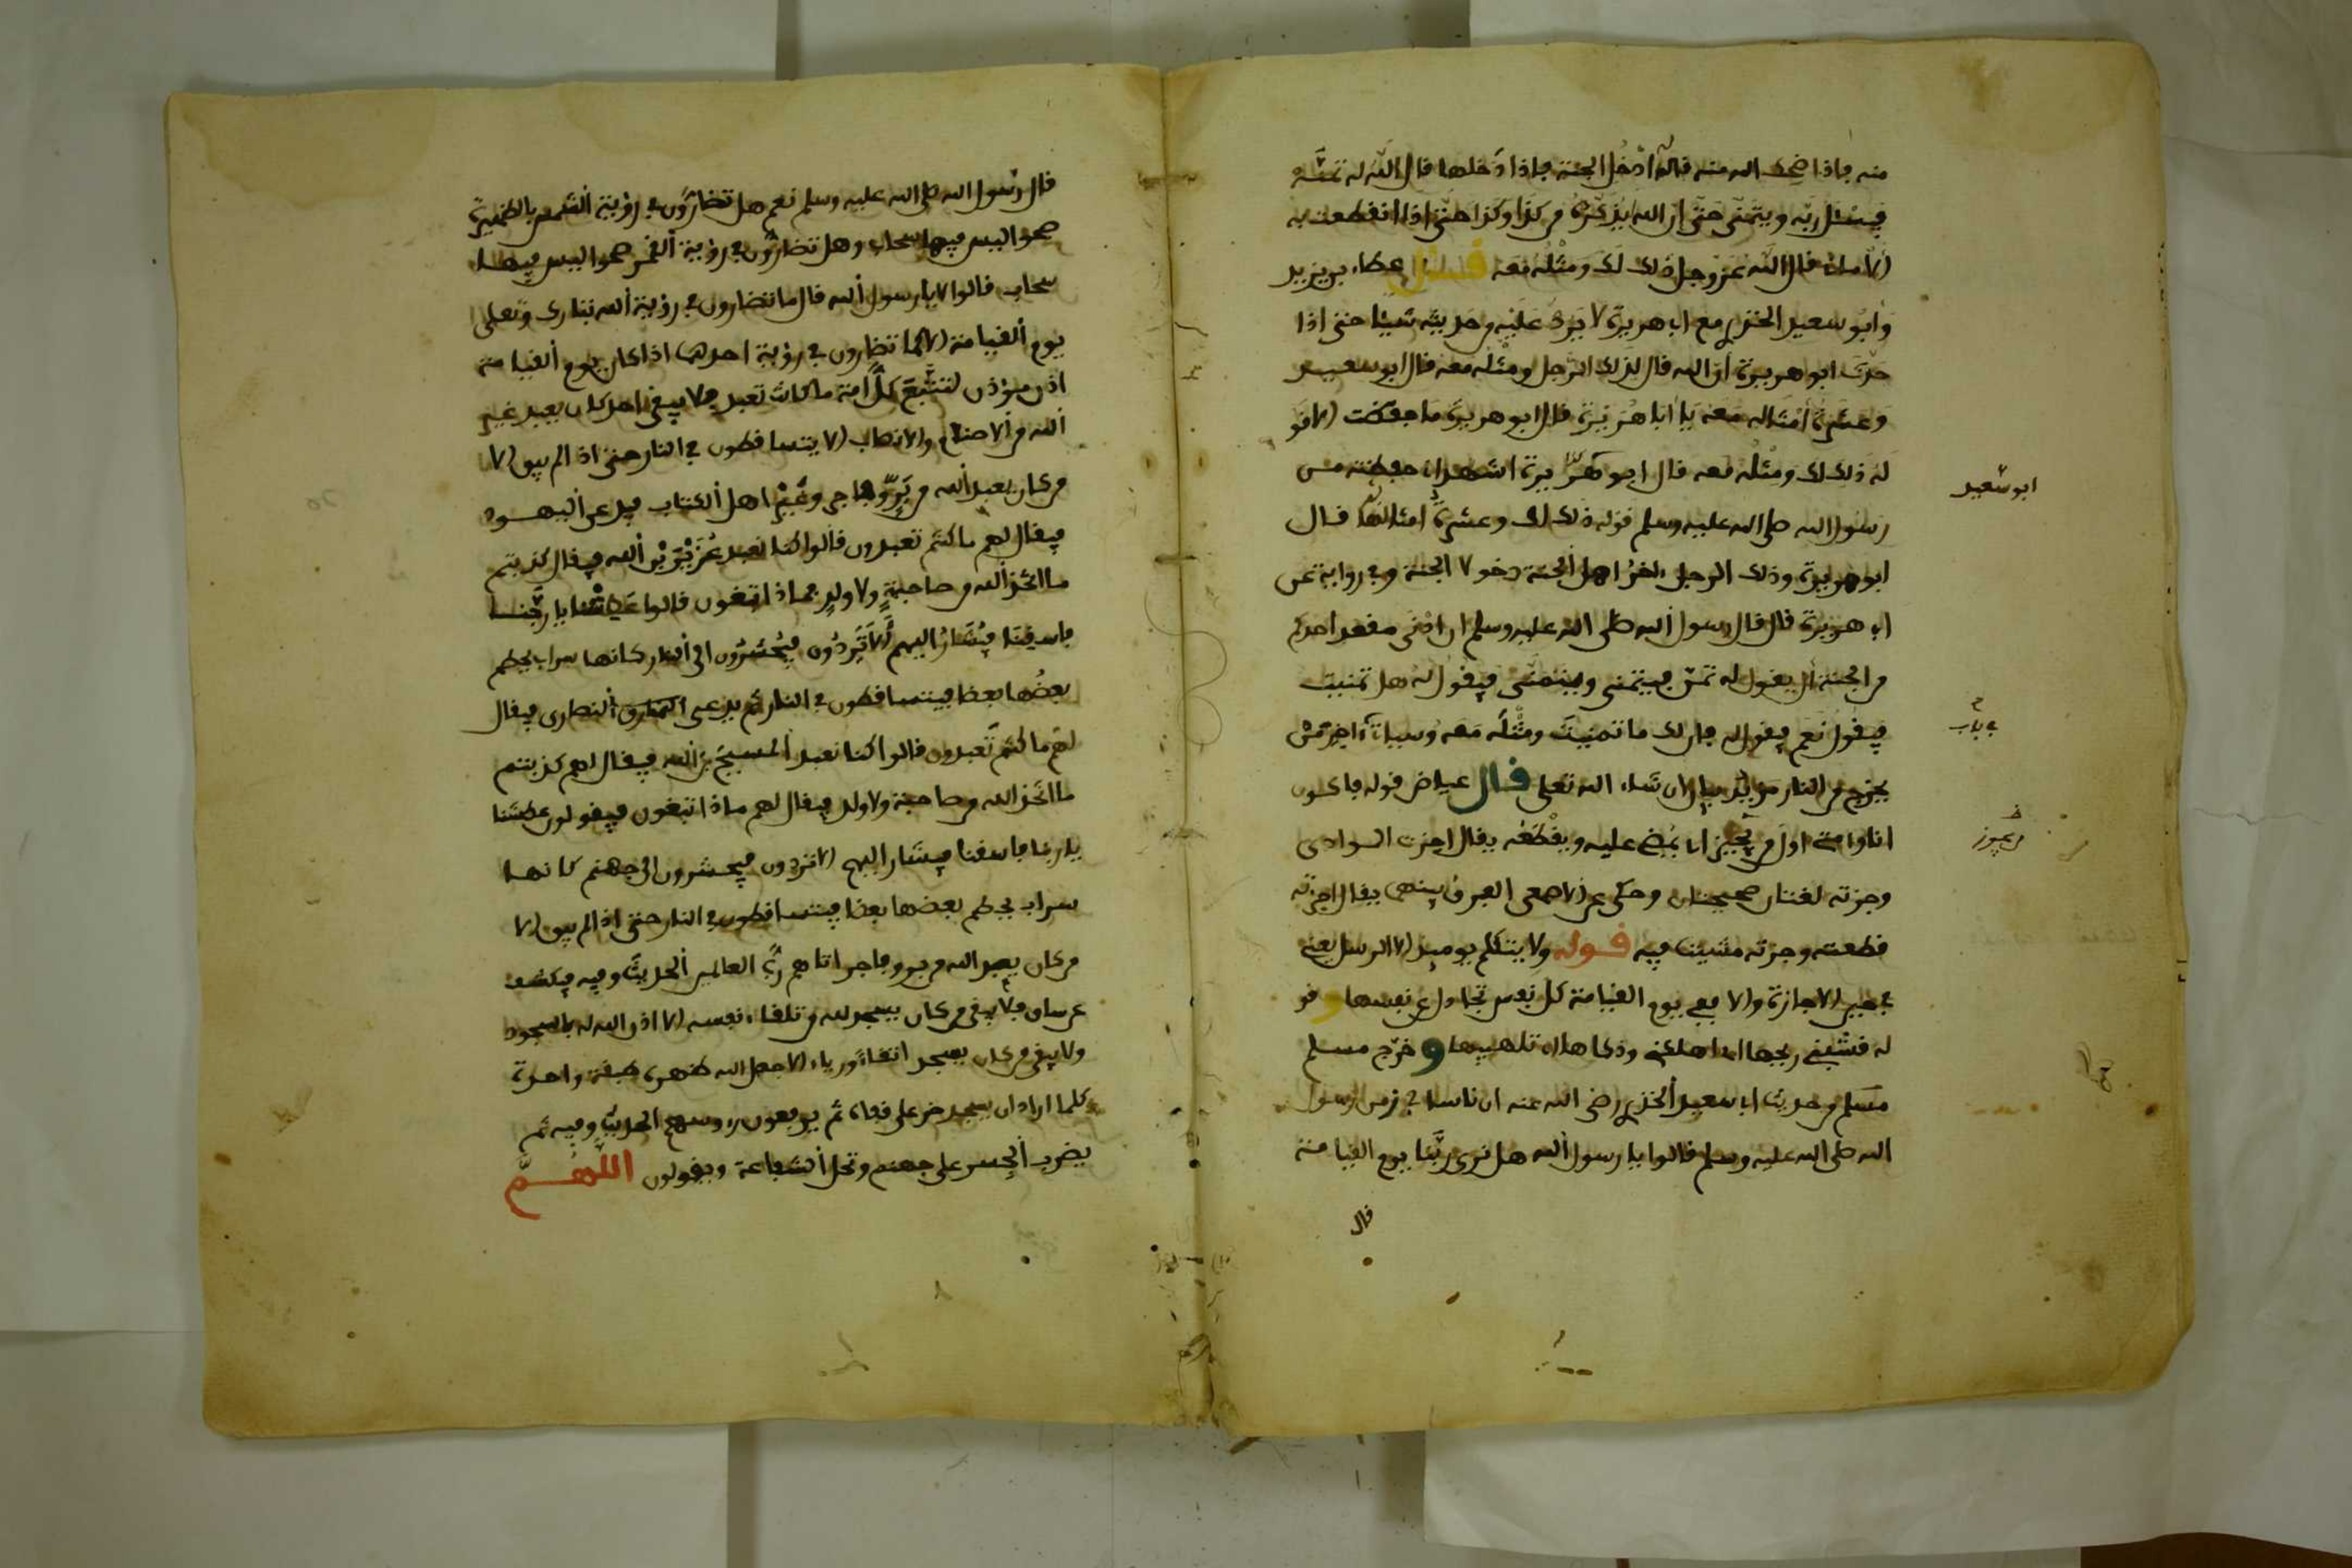 منه فإذا ضحك الله منه قال له ادخل الجنة فإذا دخلها قال الله له تمنّه
فيسئل ربّه ويتمنّى حتّى إنّ الله ليذكّره من كذا وكذا حتّى إذا انقطعت به
الأماني قال الله عزّ وجل ذلك لك ومثله معه قال عطاء بن يزيد
وأبو سعيد الخدري مع أبي هريرة لا يردّ عليه من حديثه شيئا حتى إذا
حدّث أبو هريرة أن الله قال لذلك الرجل ومثله معه قال أبو سعيد
وعشرة أمثاله معه يا أبا هريرة قال أبو هريرة ما حفظت إلا قو
له ذلك لك ومثله معه قال أبو هريرة أشهد أني حفظته من
أبو سعيد
رسول الله صلى الله عليه وسلم قوله ذلك لك وعشرة أمثاله قال
أبو هريرة وذلك الرجل اخر أهل الجنة دخولا الجنة وفي رواية عن
أبي هريرة قال قال رسول الله صلى الله عليه وسلم إن أدنى مقعد أحدكم
من الجنة أن يقول له تمنّ فيتمنى ويتمنّى فيقول له هل تمنيت
فيقول نعم فيقول له فإن لك ما تمنيت ومثله معه وسيأتي اخر من
في باب
يخرج من النار إن شاء الله تعلى قال عياض قوله فأكون
أنا وأمتي أول من يجيز أي يمضي عليه ويقطعه يقال أجزت الوادي
من يجوز
وجزته لغتان صحيحتان وحكى عن الأصمعي يقال أجزته
قطعته وجزته مشيت فيه قوله ولا يتكلم يومئذ إلا الرسل يعني
في حين الإجازة وإلا ففي يوم القيامة كل نفس تجادل عن نفسها و
وخرّج مسلم
مسلم من حديث أبي سعيد الخدري رضي الله عنه أن ناسا في زمن رسول
الله صلى الله عليه وسلم قالوا يا رسول الله هل نرى ربّنا يوم القيامة
قال
قال رسول الله صلى الله عليه وسلم نعم هل تضارّون في رؤية الشمس بالظهيرة
صحوا ليس فيها سحاب وهل تضارّون في رؤية القمر صحوا ليس فيها
سحاب قالوا لا يا رسول الله قال ما تضارون في رؤية الله تبارك وتعلى
يوم القيامة إلا كما تضارون في رؤية أحدهما إذا كان يوم القيامة
أذن مؤذن لتتّبع كلّ أمة ما كانت تعبد فلا يبقى أحد كان يعبد غير
الله من الأصنام والأنصاب إلا يتساقطون في النار حتى إذا لم يبق إلا
من كان يعبد الله من برّ وفاجر وغبّر أهل الكتاب فيدعى اليهود
فيقال لهم ما كنتم تعبدون قالوا كنا نعبد عزير بن الله فيقال كذبتم
ما اتخذ الله من صاحبة ولا ولد فماذا تبغون قالوا عطشنا يا ربّنا
فاسقنا فيشار إليهم ألا تردون فيحشرون إلى النار كأنها سراب يحطم
بعضها بعضا فيتساقطون في النار ثم يدعى النصارى فيقال
لهم ما كنتم تعبدون قالوا كنا نعبد المسيح بن الله فيقال لهم كذبتم
ما اتخذ الله من صاحبة ولا ولد فيقال لهم ماذا تبغون فيقولون عطشنا
يا ربنا فاسقنا فيشار إليهم ألا تردون فيحشرون إلى جهنم كأنها
سراب يحطم بعضها بعضا فيتساقطون في النار حتى إذا لم يبق إلا
من كان يعبد الله من بر وفاجر أتاهم ربّ العالمين الحديث وفيه فيكشف
عن ساق فلا يبقى من كان يسجد لله من تلقاء نفسه إلا أذن الله له بالسجود
ولا يبقى من كان يسجد اتقاء ورياء إلا جعل الله ظهره طبقة واحدة
كلما أراد أن يسجد خر على قفاه ثم يرفعون رءوسهم الحديث وفيه ثم
يضرب الجسر على جهنم وتحل الشفاعة ويقولون اللهمّ